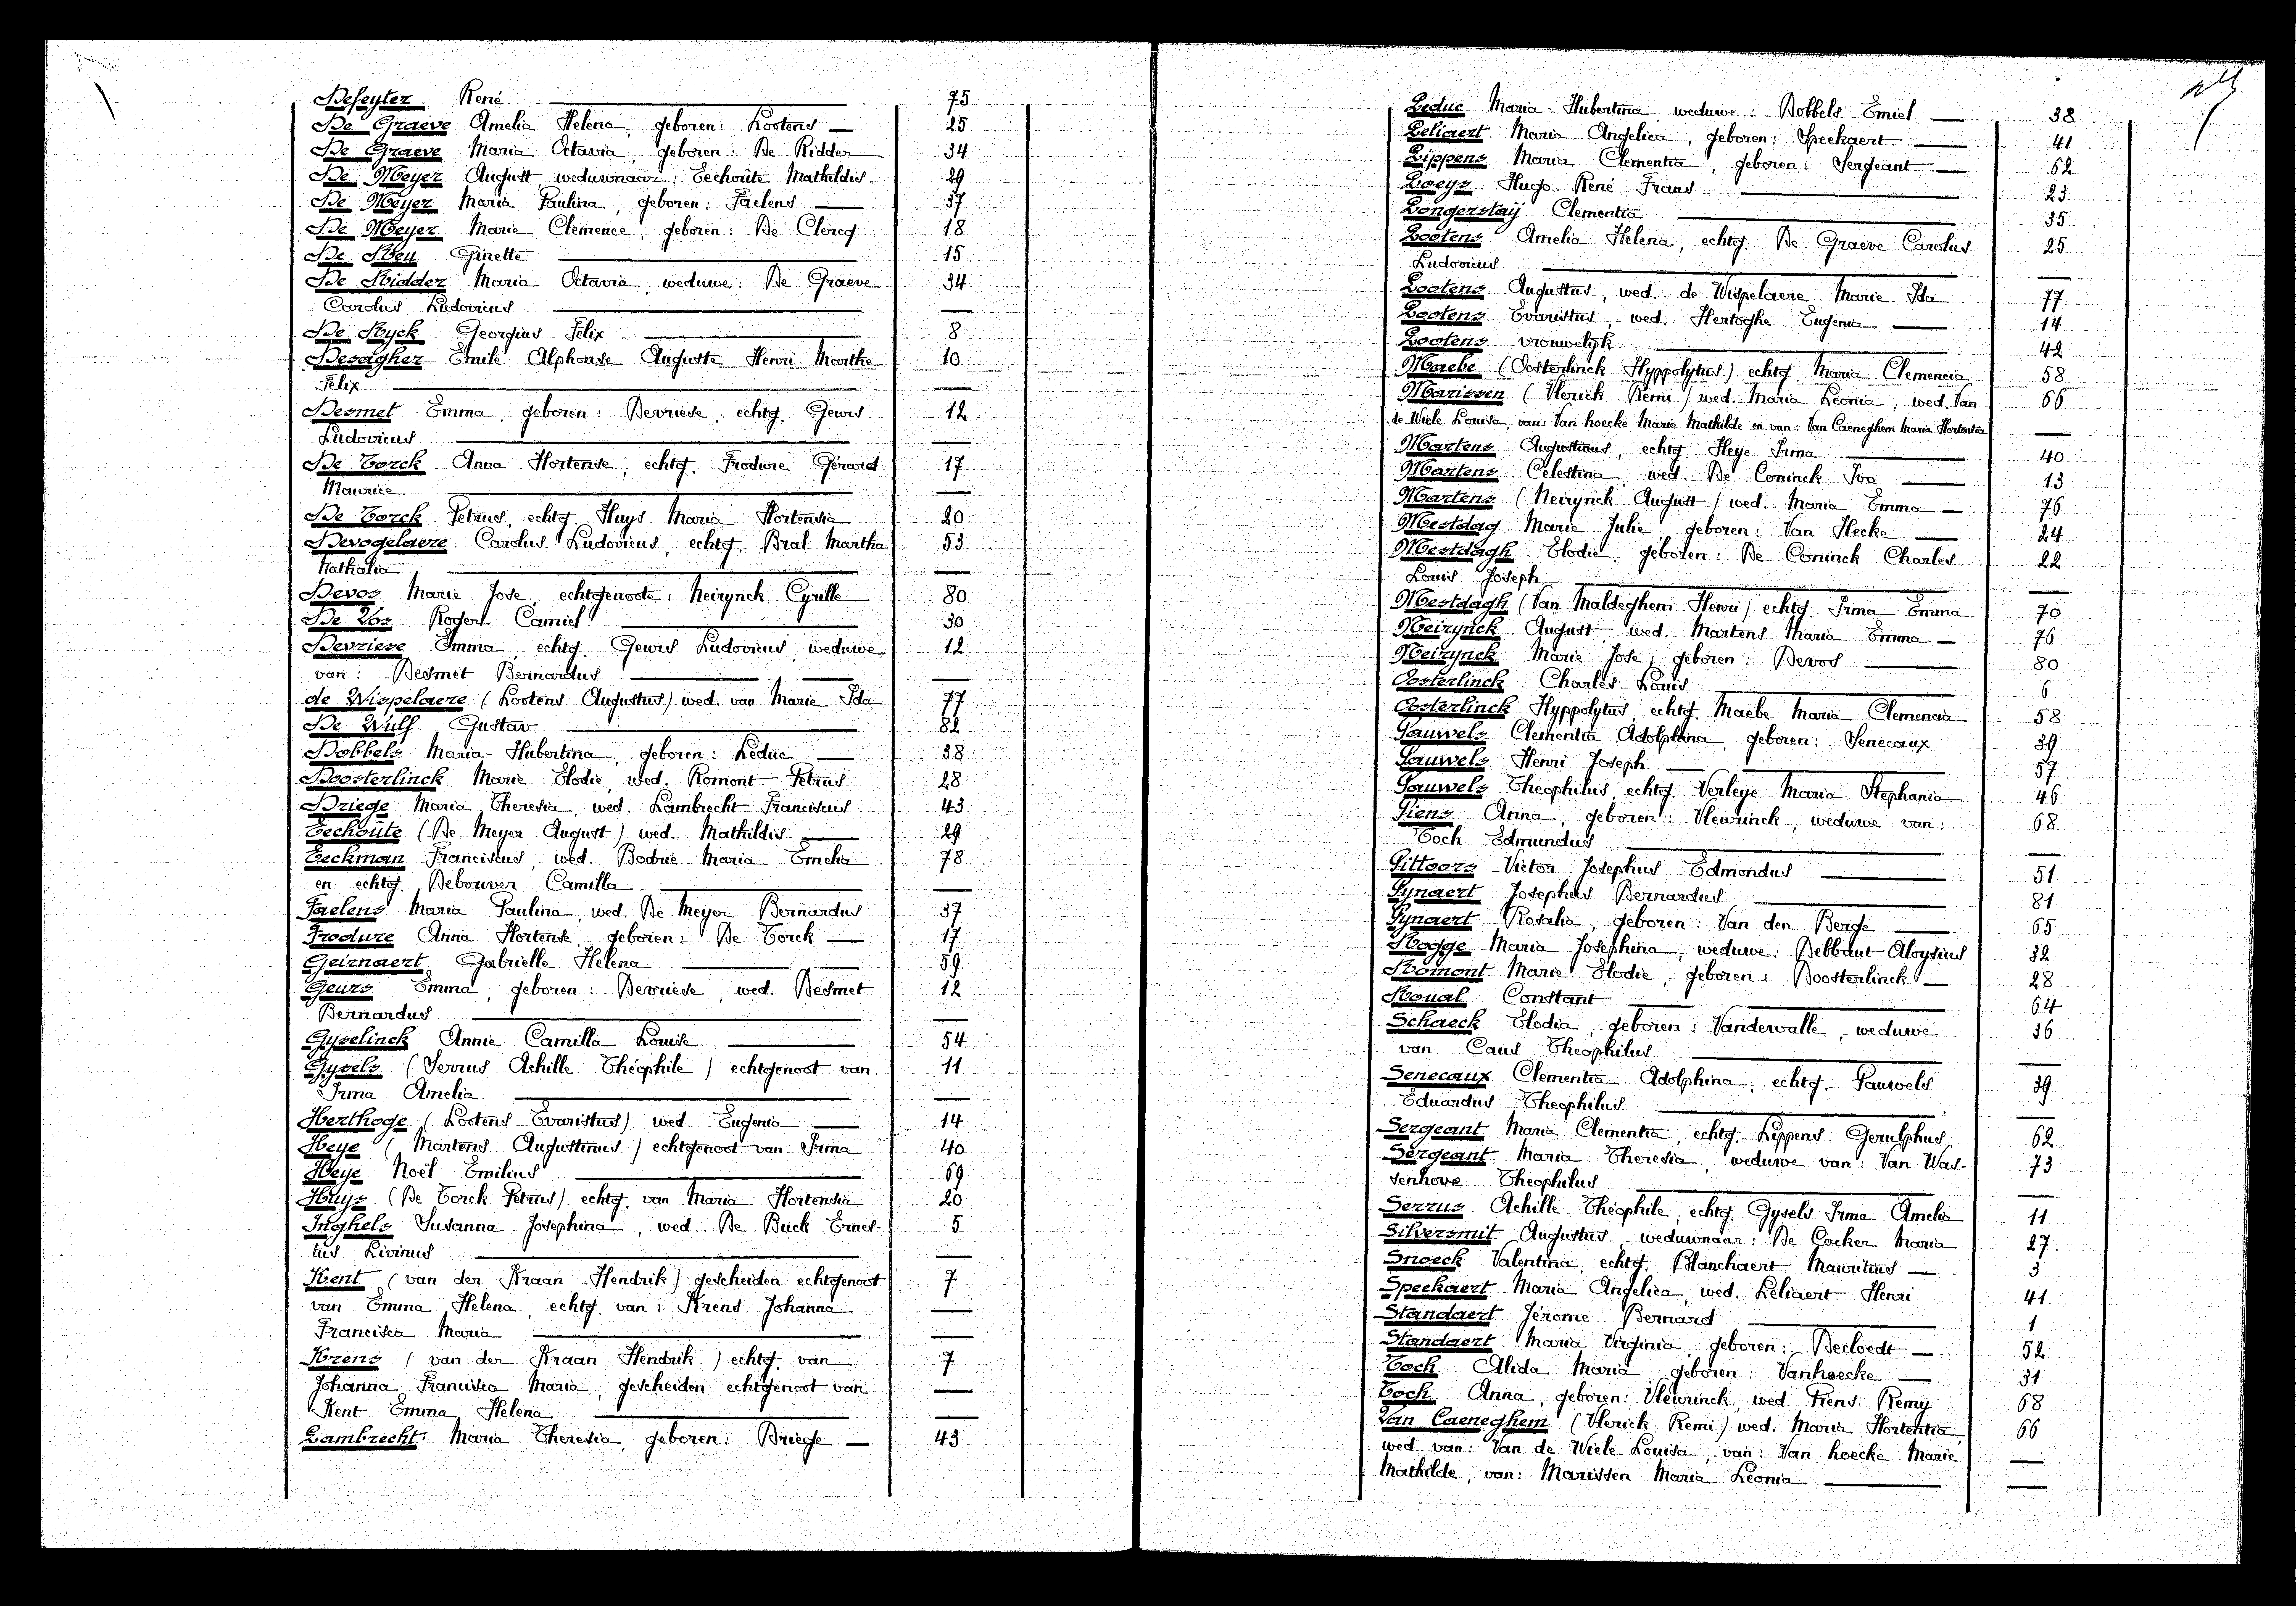 Defeyter René 75
De Graeve Amelia Helena, geboren: Lootens 25
De Graeve Maria Octavia, geboren: De Ridder 34
De Meyer August, weduwnaar: Eechoûte Mathildis 29
De Meyer Maria Paulina, geboren: Faelens 37
De Meyer Marie Clemence, geboren: De Clercq 18
De Neu Ginette 15
De Ridder Maria Octavia, weduwe: De Graeve 34
Carolus Ludovicus
De Ryck Georgius Felix 8
Desagher Emile Alphonse Auguste Henri Marthe 10
Felix
Desmet Emma, geboren: Devriese, echtg. Geurs 12
Ludovicus
De Torck Anna Hortense, echtg. Frodure Gérard 17
Maurice
De Torck Petrus, echtg. Huys Maria Hortensia 20
Devogelaere Carolus Ludovicus, echtg. Bral Martha 53
Nathalia
Devos Marie Jose, echtgenoote: Neirynck Cyrille 80
De Vos Roger Camiel 30
Devriese Emma, echtg. Geurs Ludovicus, weduwe 12
van: Desmet Bernardus
de Wispelaere (Lootens Augustus) wed. van Marie Ida 77
De Wulf Gustav 82
Dobbels Maria-Hubertina, geboren: Leduc 38
Doosterlinck Marie Elodie, wed. Romont Petrus 28
Driege Maria Theresia, wed. Lambrecht Franciscus 43
Eechoûte (De Meyer August) wed. Mathildis 29
Eeckman Franciscus, wed. Bodrie Maria Emelia 78
en echtg. Debouver Camilla
Faelens Maria Paulina, wed. De Meyer Bernardus 37
Frodure Anna Hortense, geboren: De Torck 17
Geirnaert Gabrielle Helena 59
Geurs Emma, geboren: Devriese, wed. Desmet 12
Bernardus
Gyselinck Annie Camilla Louise 54
Gysels (Serrus Achille Théophile) echtgenoot van 11
Irma Amelia
Herthoge (Lootens Evaristus) wed. Eugenia 14
Heye (Martens Augustinus) echtgenoot van Irma 40
Heye Noël Emilius 69
Huys (De Torck Petrus) echtg. van Maria Hortensia 20
Inghels Susanna Josephina, wed. De Buck Ernes- 5
tus Livinus
Kent (van der Kraan Hendrik) gescheiden echtgenoot 7
van Emma Helena, echtg. van: Krens Johanna
Francisca Maria
Krens (van der Kraan Hendrik) echtg. van 7
Johanna Francisca Maria, gescheiden echtgenoot van
Kent Emma Helena
Lambrecht Maria Theresia, geboren: Driege 43
Leduc Maria-Hubertina, weduwe: Dobbels Emiel 38
Leliaert Maria Angelica, geboren: Speekaert 41
Lippens Maria Clementia, geboren: Sergeant 62
Loeys Hugo René Frans 23
Longerstaÿ Clementia 35
Lootens Amelia Helena, echtg. De Graeve Carolus 25
Ludovicus
Lootens Augustus, wed. de Wispelaere Marie Ida 77
Lootens Evaristus, wed. Hertoghe Eugenia 14
Lootens vrouwelijk 42
Maebe (Oosterlinck Hyppolytus) echtg. Maria Clemencia 58
Marissen (Vlerick Remi) wed. Maria Leonia, wed. Van 66
de Wiele Louisa, van: Van hoecke Marie Mathilde en van: Van Caeneghem Maria Hortentia
Martens Augustinus, echtg. Heye Irma 40
Martens Celestina, wed. De Coninck Ivo 13
Martens (Neirynck August) wed. Maria Emma 76
Mestdag Marie Julie, geboren: Van Hecke 24
Mestdagh Elodie, geboren: De Coninck Charles 22
Louis Joseph
Mestdagh (Van Maldeghem Henri) echtg. Irma Emma 70
Neirynck August, wed. Martens Maria Emma 76
Neirynck Marie Jose, geboren: Devos 80
Oosterlinck Charles Louis 6
Oosterlinck Hyppolytus, echtg. Maebe Maria Clemencia 58
Pauwels Clementia Adolphina, geboren: Senecaux 39
Pauwels Henri Joseph 57
Pauwels Theophilus, echtg. Verleye Maria Stephania 46
Piens Anna, geboren: Vlewrinck, weduwe van: 68
Toch Edmundus
Pittoors Victor Josephus Edmondus 51
Pynaert Josephus Bernardus 81
Pynaert Rosalia, geboren: Van den Berge 65
Rogge Maria Josephina, weduwe: Debbaut Aloysius 32
Romont Marie Elodie, geboren: Doosterlinck 28
Roual Constant 64
Schaeck Elodia, geboren: Vandewalle, weduwe 36
van Caus Theophilus
Senecaux Clementia Adolphina, echtg. Pauwels 39
Eduardus Theophilus
Sergeant Maria Clementia, echtg. Lippens Gerulphus 62
Sergeant Maria Theresia, weduwe van: Van Was- 73
senhove Theophilus
Serrus Achille Théophile, echtg. Gysels Irma Amelia 11
Silversmit Augustus, weduwnaar: De Cocker Maria 27
Snoeck Valentina, echtg. Blanchaert Mauritius 3
Speekaert Maria Angelica, wed. Leliaert Henri 41
Standaert Jérome Bernard 1
Standaert Maria Virginia, geboren: Decloedt 52
Toch Alida Maria, geboren: Vanhoecke 31
Toch Anna, geboren: Vlewrinck, wed. Piens Remy 68
Van Caeneghem (Vlerick Remi) wed. Maria Hortentia, 66
wed. van: Van de Wiele Louisa, van: Van hoecke Marie
Mathilde, van: Marissen Maria Leonia